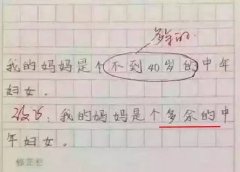 多余的
我的妈妈是个不到40岁的中年
妇女。
改为：我的妈妈是个多余的中
年妇女。